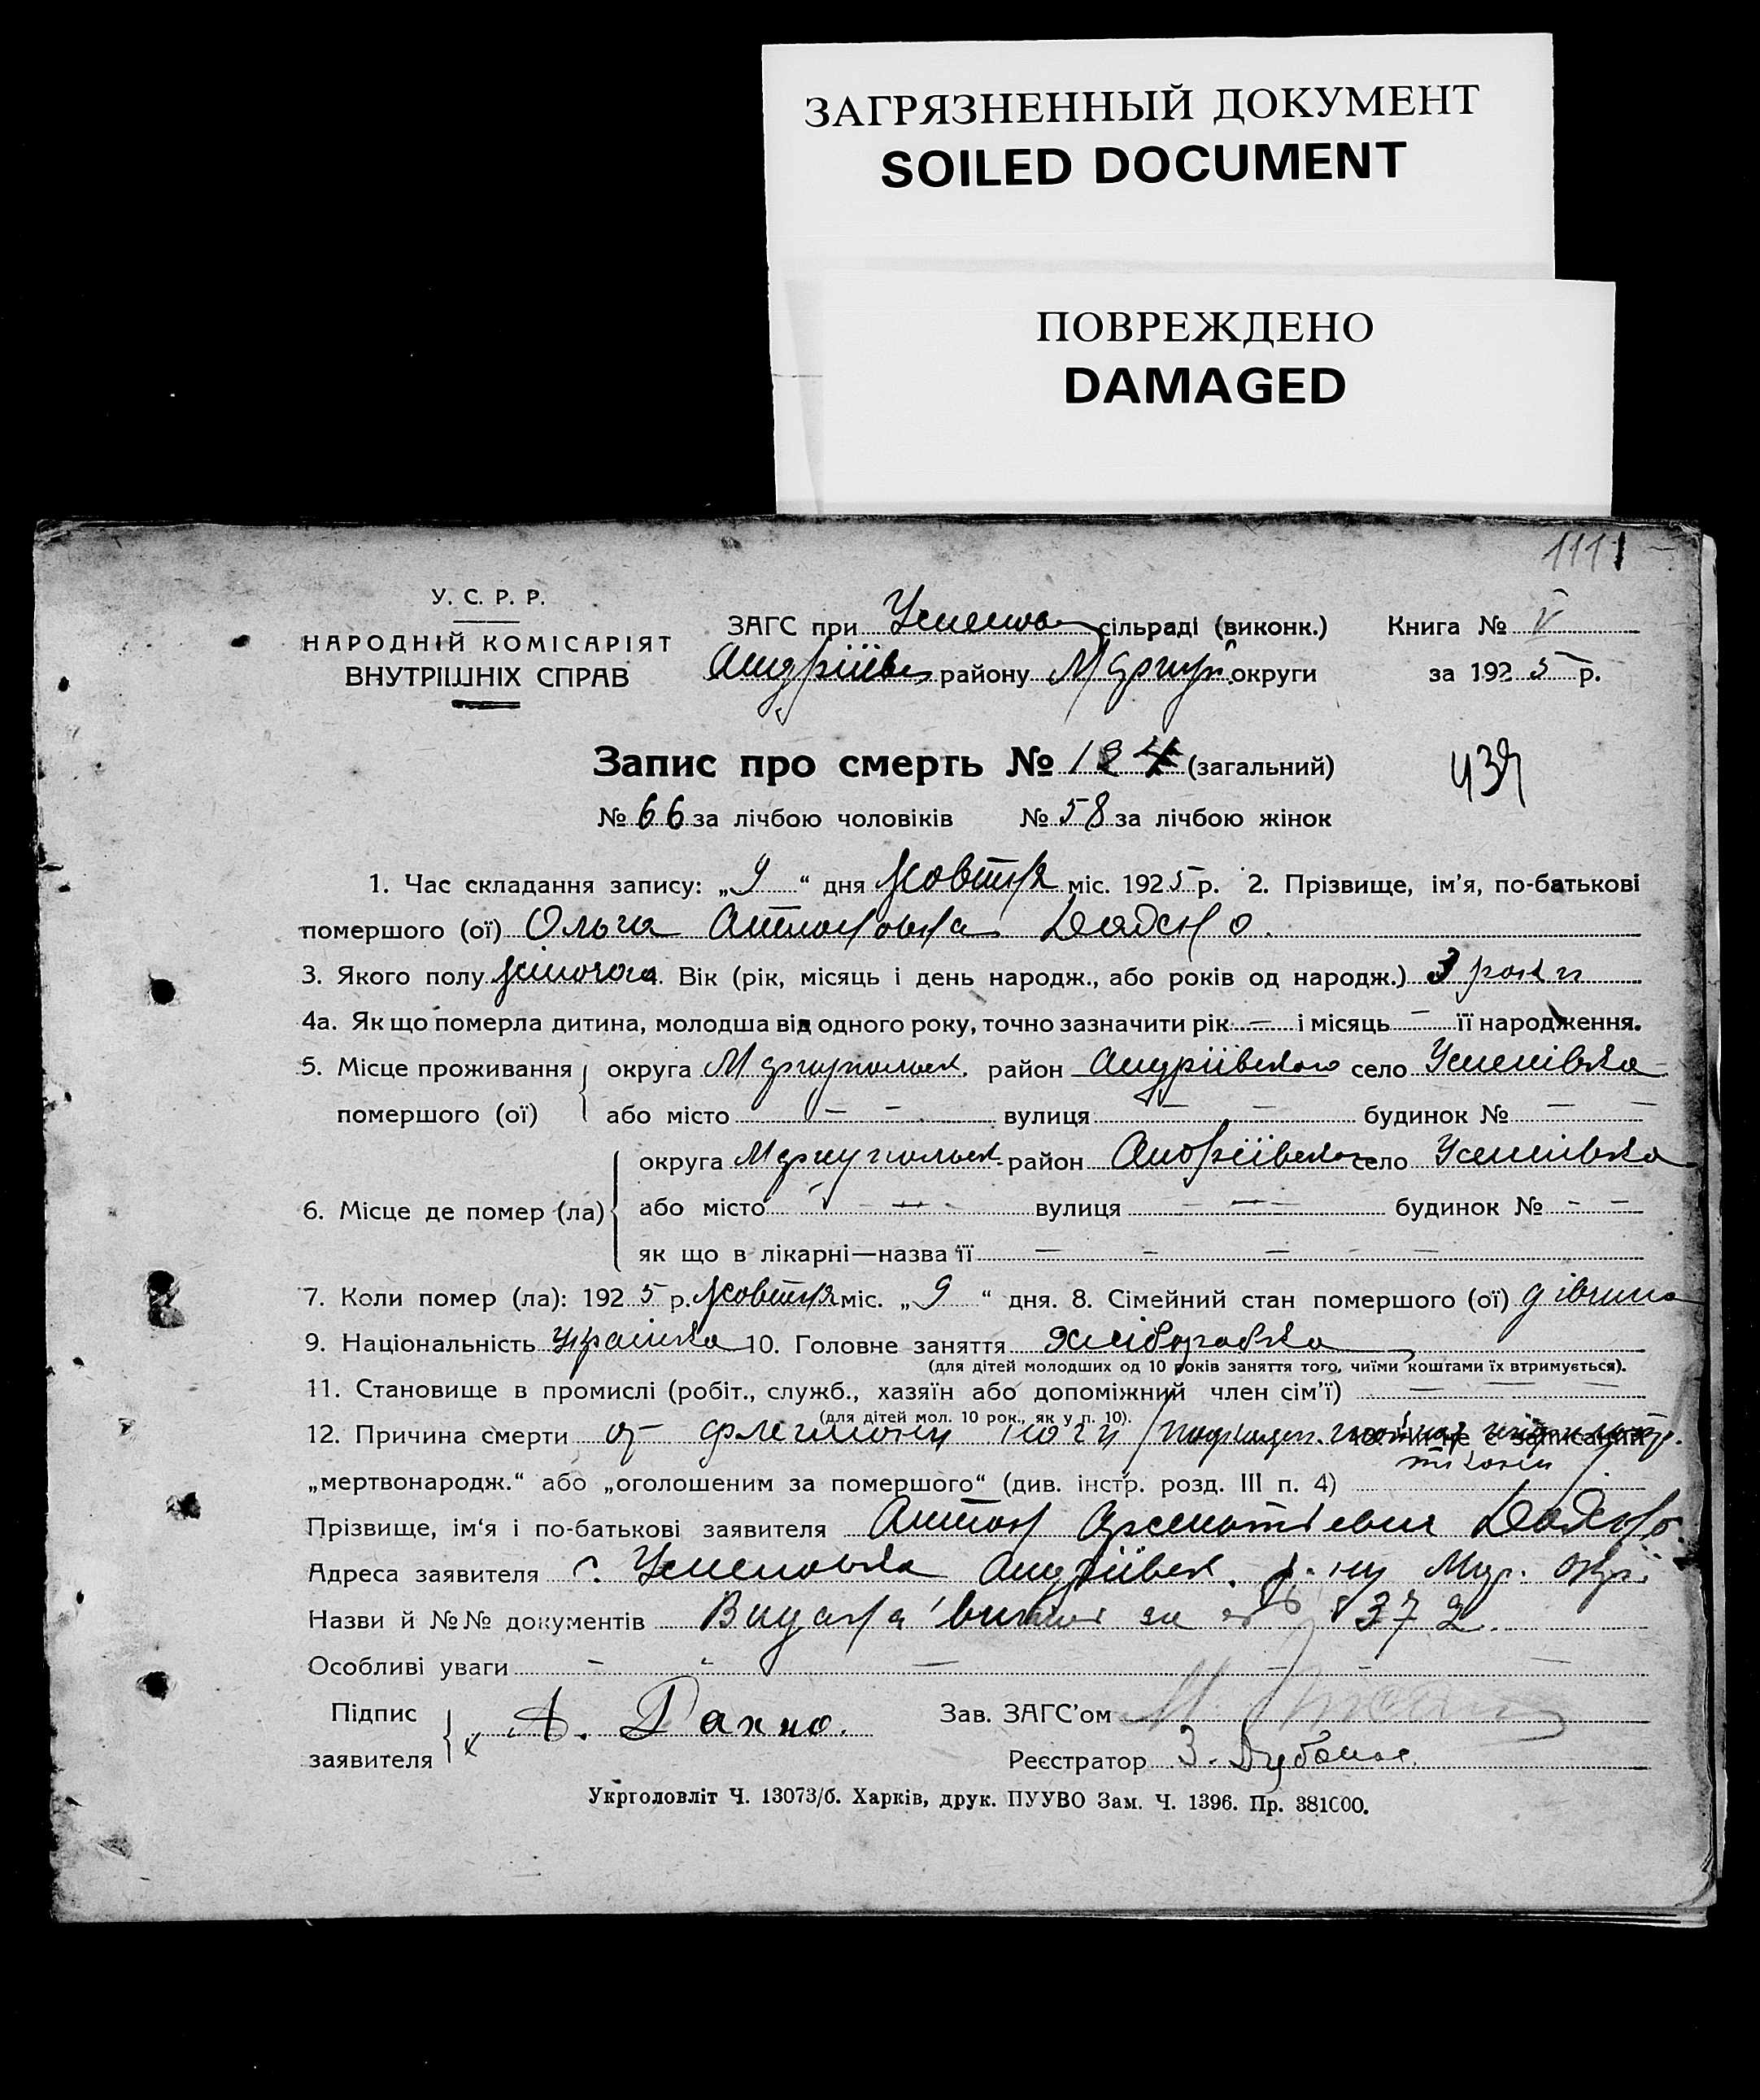 ЗАГРЯЗНЕННЫЙ ДОКУМЕНТ
SOILED DOCUMENT
ПОВРЕЖДЕНО
DAMAGED
1111
У. С. Р. Р.
НАРОДНІЙ КОМІСАРІЯТ
ВНУТРІШНІХ СПРАВ
ЗАГС при Успенов сільраді (виконк.) Книга № V
Андріївс району Маріуп. округи за 1925 р.
Запис про смерть № 124 (загальний)
439
№ 66 за лічбою чоловіків № 58 за лічбою жінок
1. Час складання запису: „9“ дня жовтня міс. 1925 р. 2. Прізвище, ім’я, по-батькові
помершого (ої) Ольга Антоновна
3. Якого полу жіночога 4. Вік (рік, місяць і день народж., або років од народж.) 3 роки
4а. Як що померла дитина, молодша від одного року, точно зазначити рік — і місяць — її народження.
5. Місце проживання помершого (ої) округа Маріупольск. район Андріївского село Успенівка
або місто — — вулиця — — будинок № — —
6. Місце де помер (ла) округа Маріупольск. район Андріївского село Успенівка
або місто — — вулиця — — будинок № - -
як що в лікарні—назва її — - — - —
7. Коли помер (ла): 1925 р. жовтня міс. „9“ дня. 8. Сімейний стан помершого (ої) дівчина
9. Національність Українка 10. Головне заняття Хліборобка
(для дітей молодших од 10 років заняття того, чиїми коштами їх втримується).
11. Становище в промислі (робіт., служб., хазяїн або допоміжний член сім’ї) — — —
(для дітей мол. 10 рок., як у п. 10).
12. Причина смерти от флегмоны ноги
„мертвонародж.“ або „оголошеним за помершого“ (див. інстр. розд. III п. 4)
Прізвище, ім‘я і по-батькові заявителя Антон
Адреса заявителя с. Успеновка Андріївск. р-ну Мар. окр.
Назви й №№ документів Видана за № 372.
Особливі уваги - - — - - —
Підпис заявителя А. Дахно.
Зав. ЗАГС’ом М.
Реєстратор З.
Укрголовліт Ч. 13073/б. Харків, друк. ПУУВО Зам. Ч. 1396. Пр. 381000.